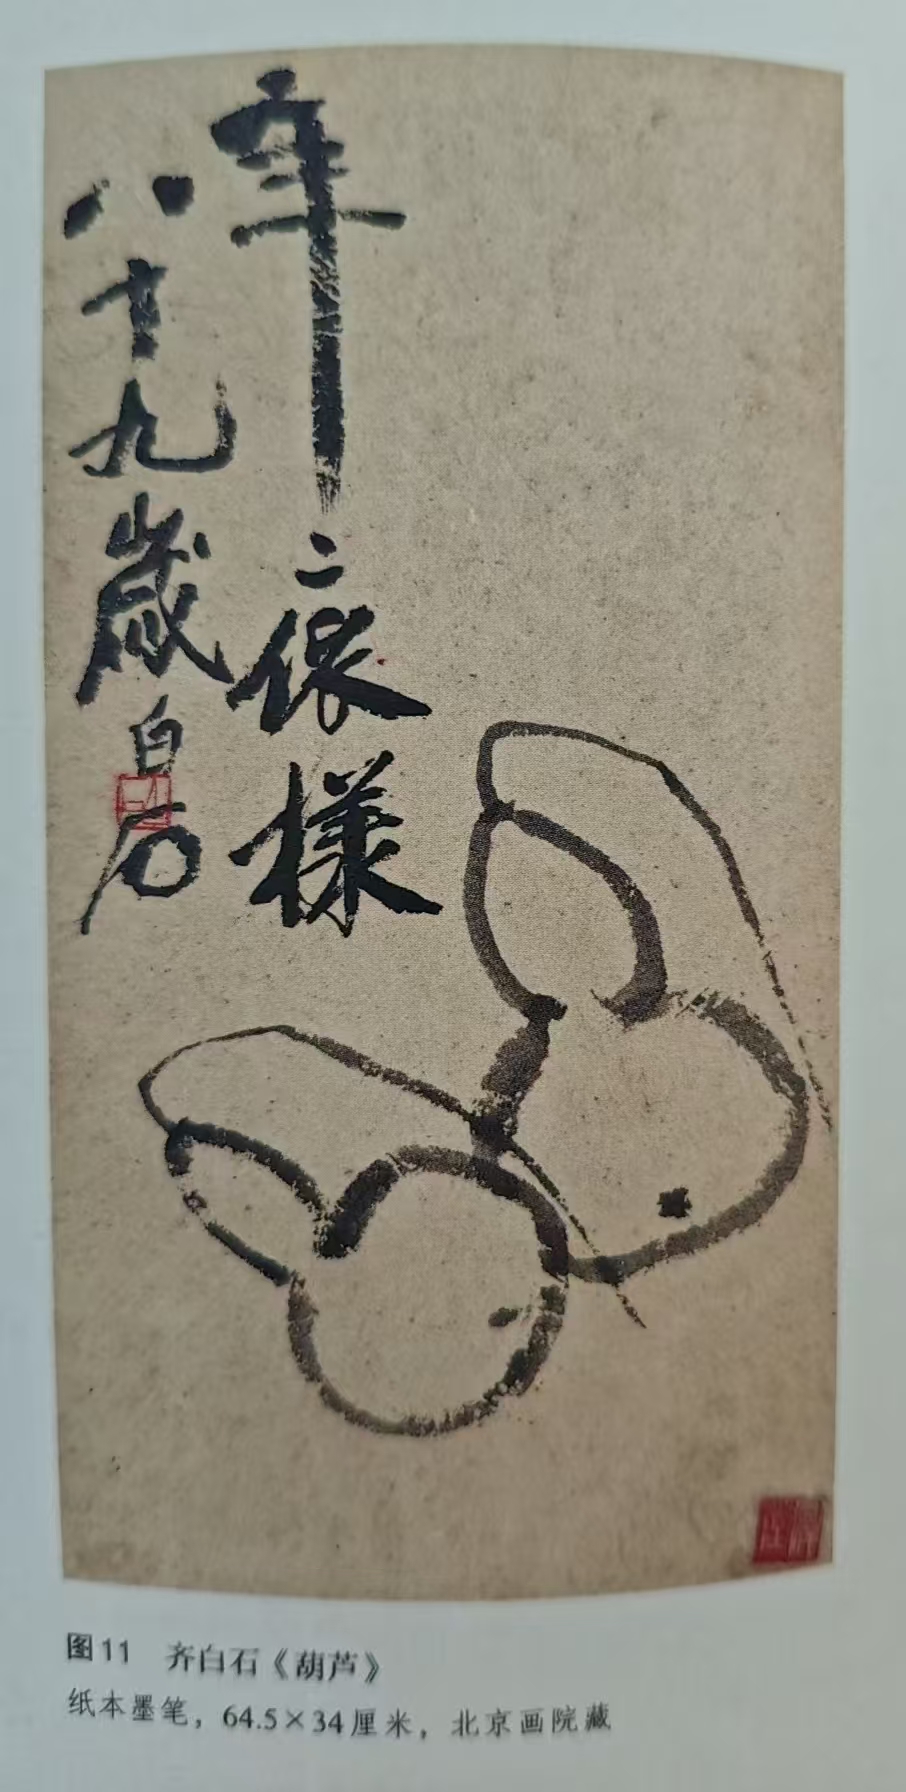 年〻依樣
八十九歲白石
图11 齐白石《葫芦》
纸本墨笔，64.5×34厘米，北京画院藏